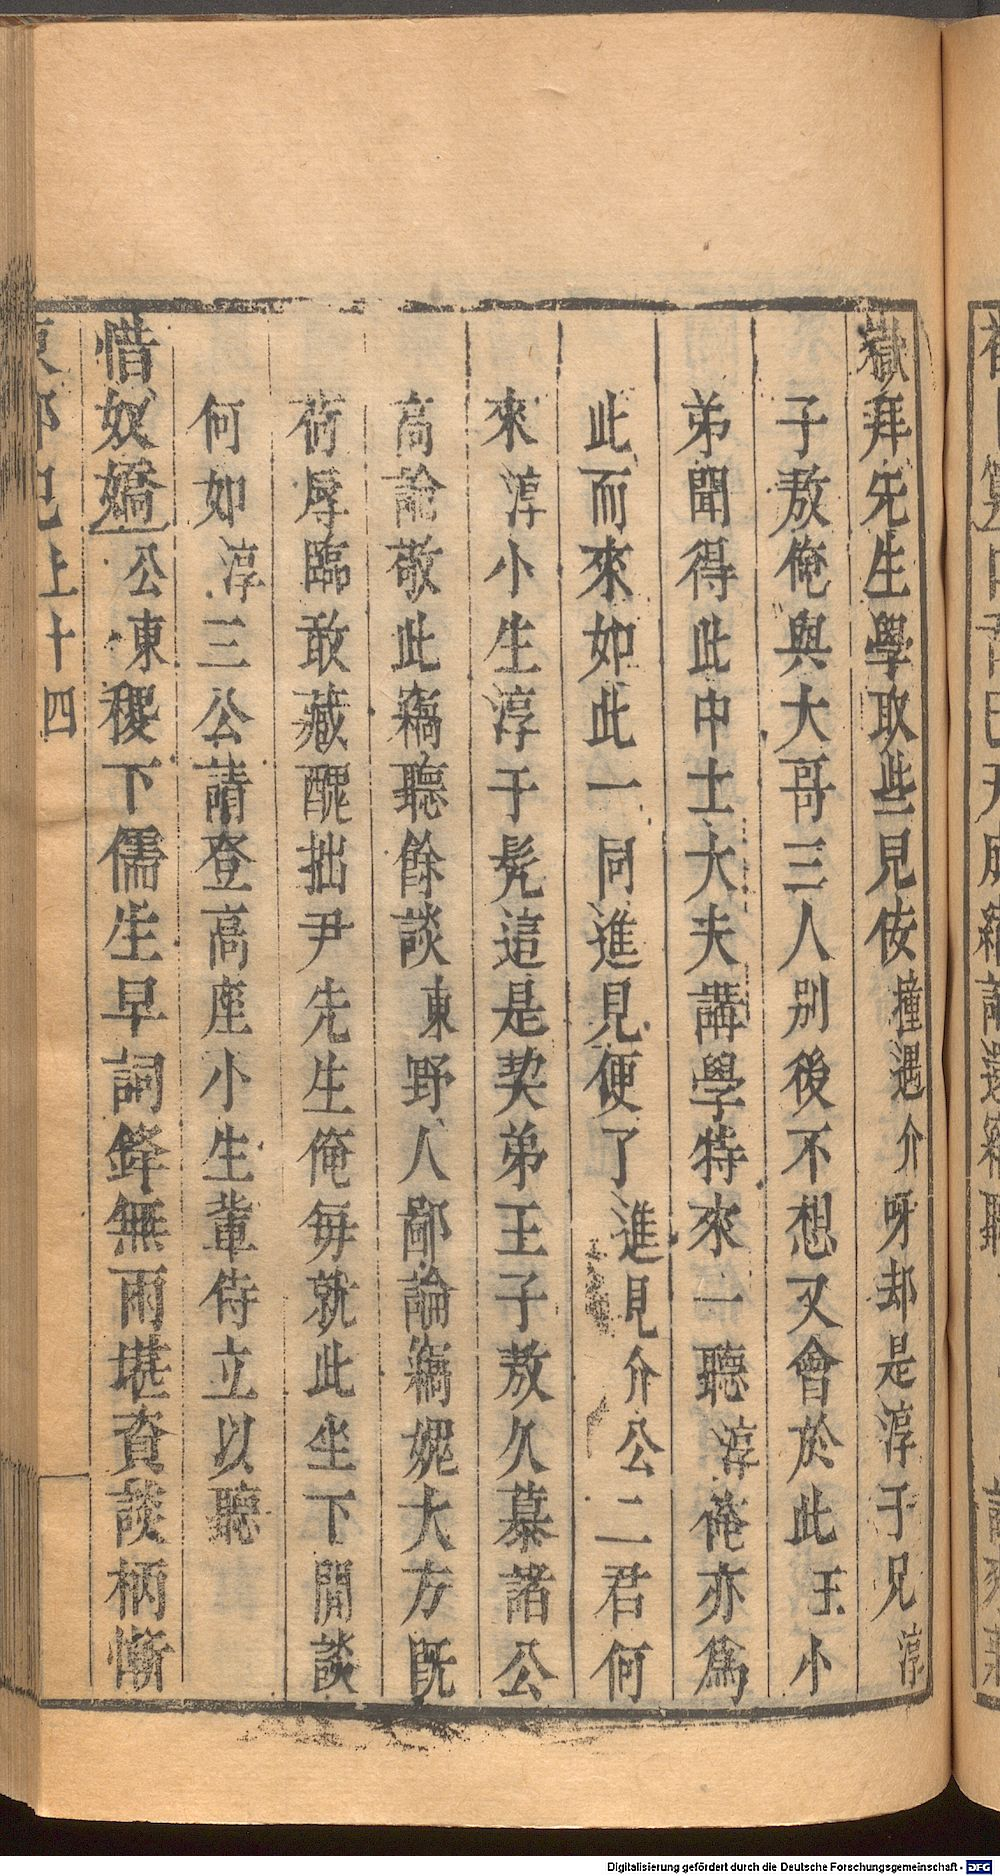 嶽拜先生學取些見侒撞遇介呀却是淳于兄淳
子敖俺與大哥三人別後不想又會於此王小
弟聞得此中士大夫講學特來一聽淳俺亦爲
此而來如此一同進見便了進見介公二君何
來淳小生淳于髠這是契弟王子敖久慕諸公
高論敬此竊聽餘談東野人鄙論竊媿大方旣
荷辱臨敢藏醜拙尹先生俺每就此坐下閒談
何如淳三公請登高座小生輩侍立以聽
惜奴嬌公東稷下儒生早詞鋒無雨堪資談柄慚
東郭記上十四
Digitalisierung gefördert durch die Deutsche Forschungsgemeinschaft - DFG